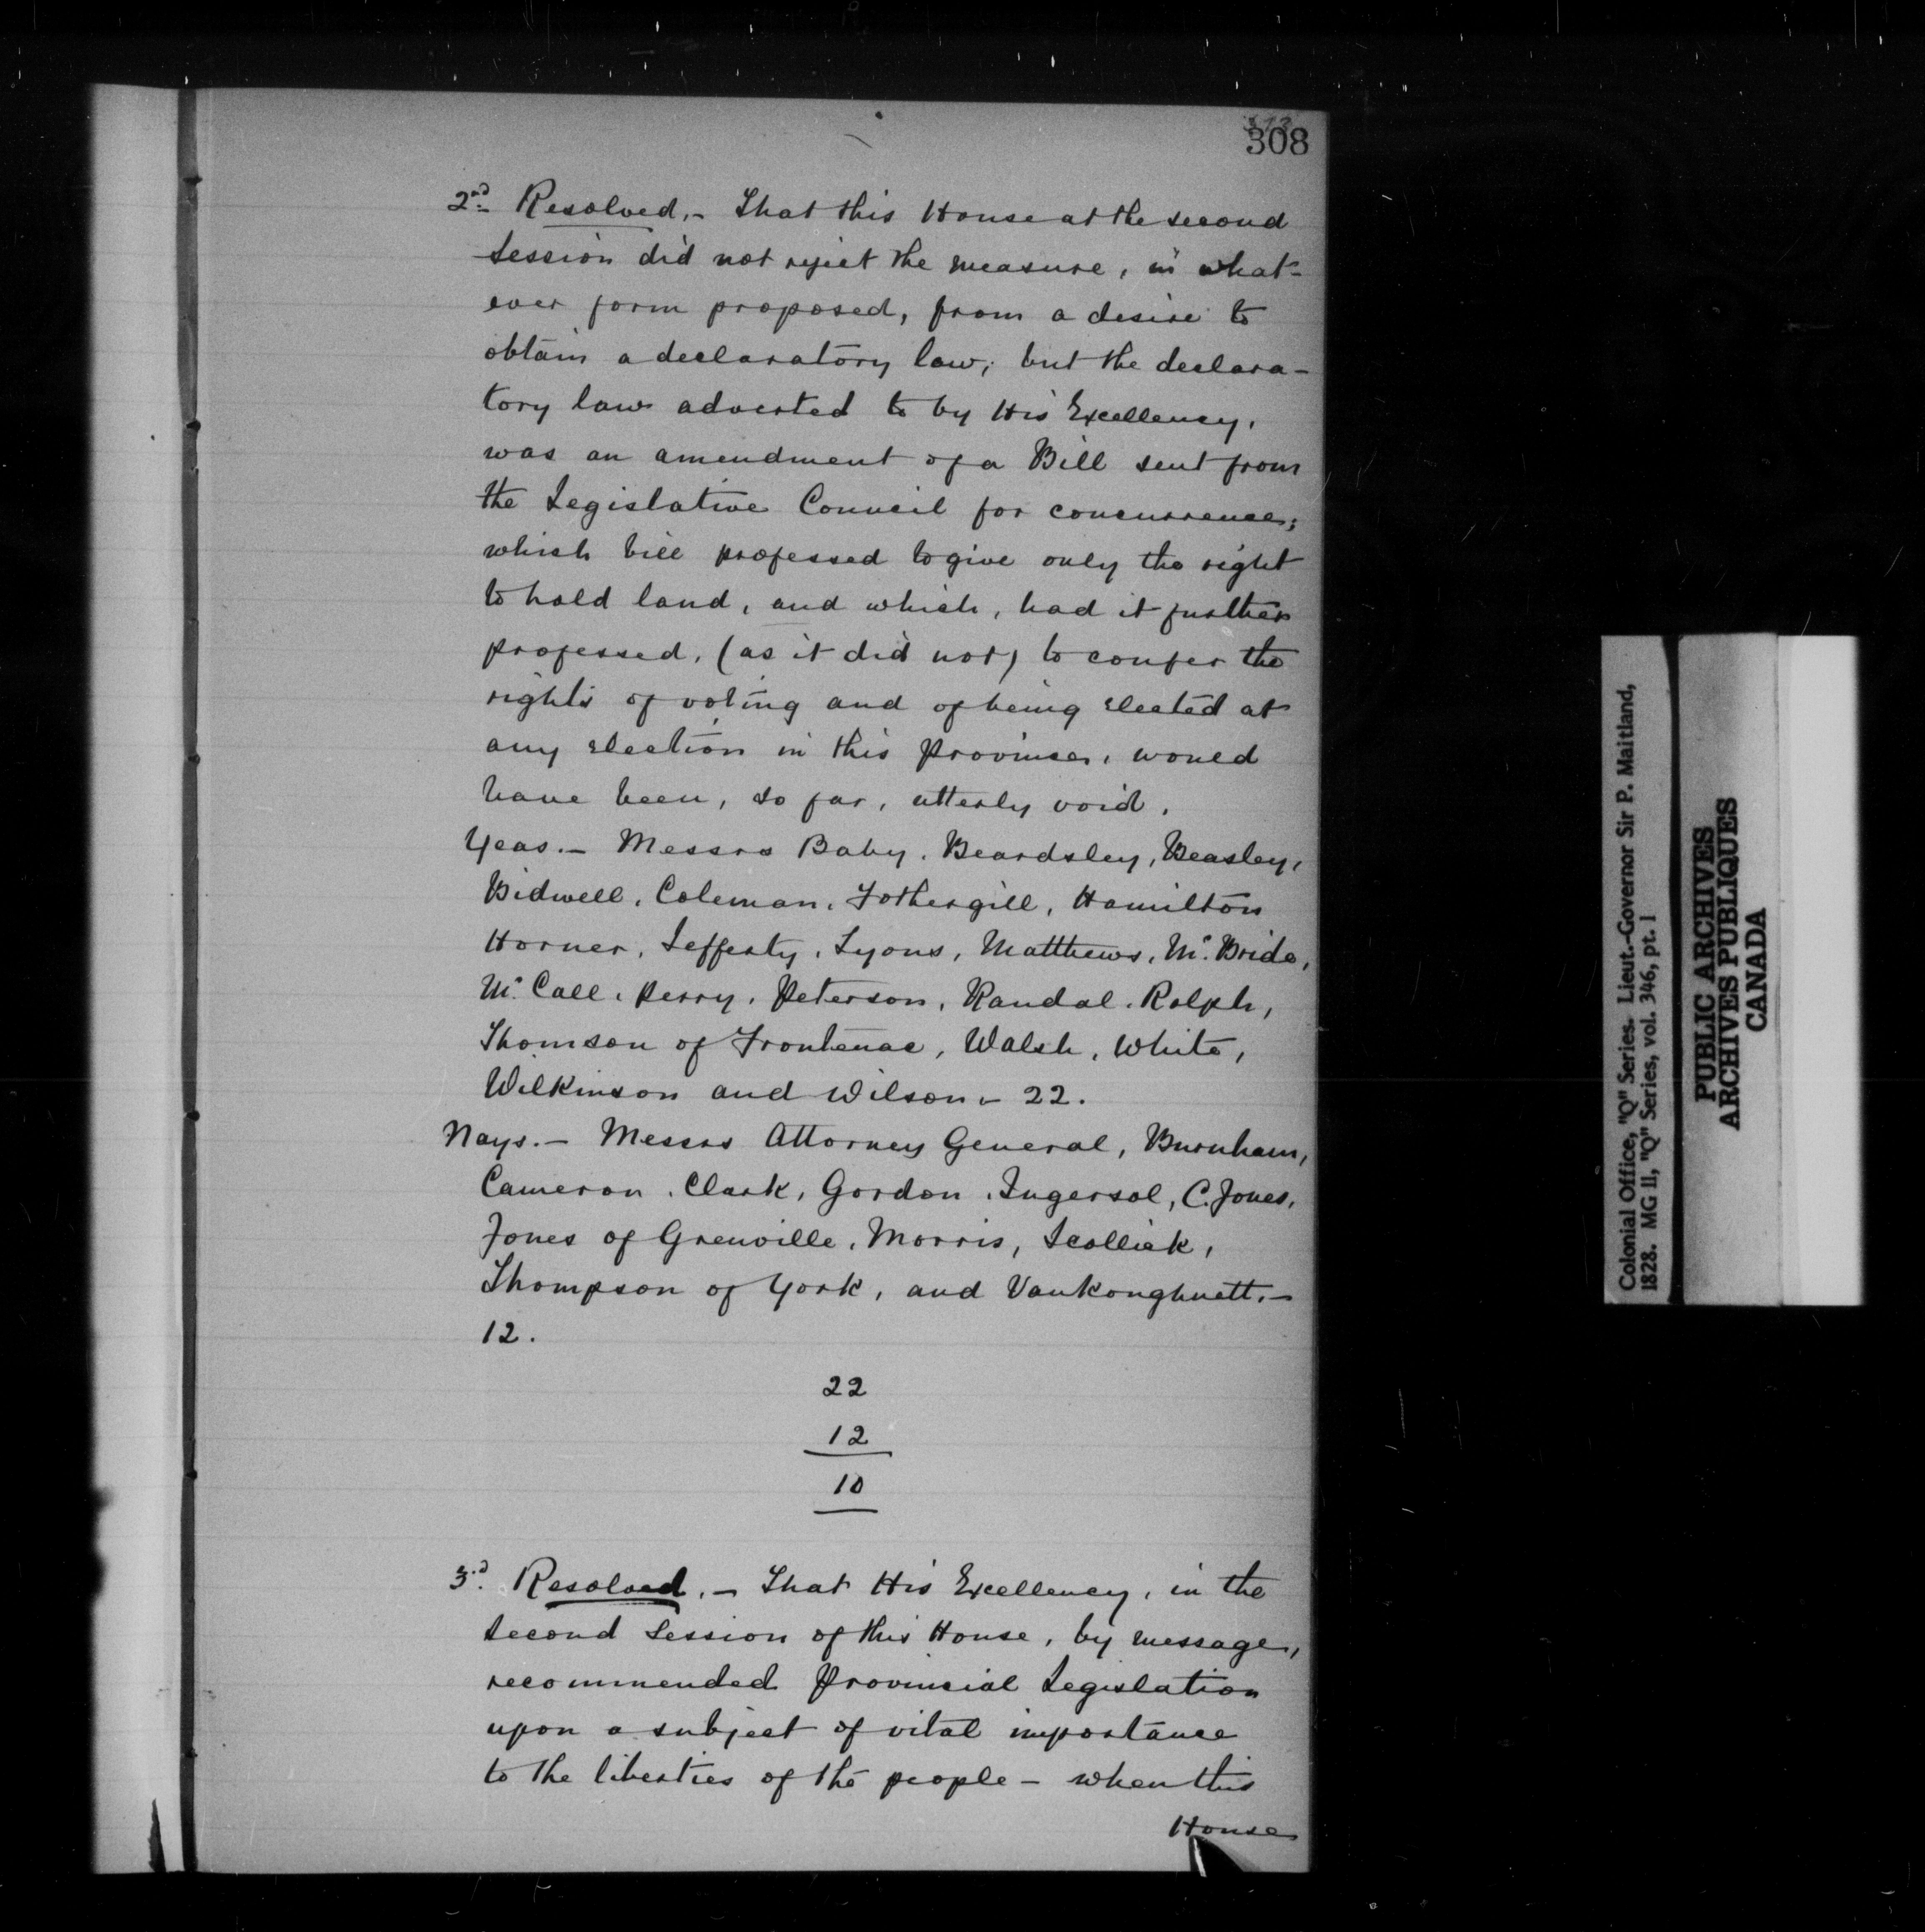 308
2nd Resolved, - That this House at the second
Session did not reject the measure, in what-
ever form proposed, from a desire to
obtain a declaratory law; but the declara-
tory law adverted to by His Excellency,
was an amendment of a Bill sent from
the Legislative Council for concurrence;
which bill professed to give only the right
to hold land, and which, had it further
professed, (as it did not) to confer the
rights of voting and of being elected at
any election in this Province, would
have been, so far, utterly void.
Yeas. - Messrs Baby, Beardsley, Beasley,
Bidwell, Coleman, Fothergill, Hamilton
Horner, Lefferty, Lyons, Matthews, Mc. Bride,
Mc. Call, Perry, Peterson, Randal, Rolph,
Thomson of Frontenac, Walsh, White,
Wilkinson and Wilson - 22.
Nays. - Messrs Attorney General, Burnham,
Cameron, Clark, Gordon, Ingersol, C. Jones,
Jones of Grenville, Morris, Scollick,
Thompson of York, and Vankoughnett. -
12.
22
12
10
3d. Resolved, - That His Excellency, in the
Second Session of this House, by message,
recommended Provincial Legislation
upon a subject of vital importance
to the liberties of the people - when this
House
Colonial Office, "Q" Series. Lieut.-Governor Sir P. Maitland,
1828. MG 11, "Q" Series, vol. 346, pt. 1
PUBLIC ARCHIVES
ARCHIVES PUBLIQUES
CANADA